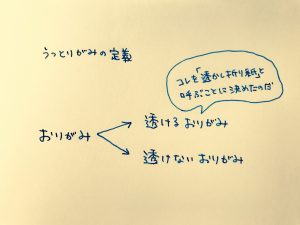 うっとりがみの定義
コレを「透かし折り紙」と
呼ぶことに決めたのだ
おりがみ
透けるおりがみ
透けないおりがみ